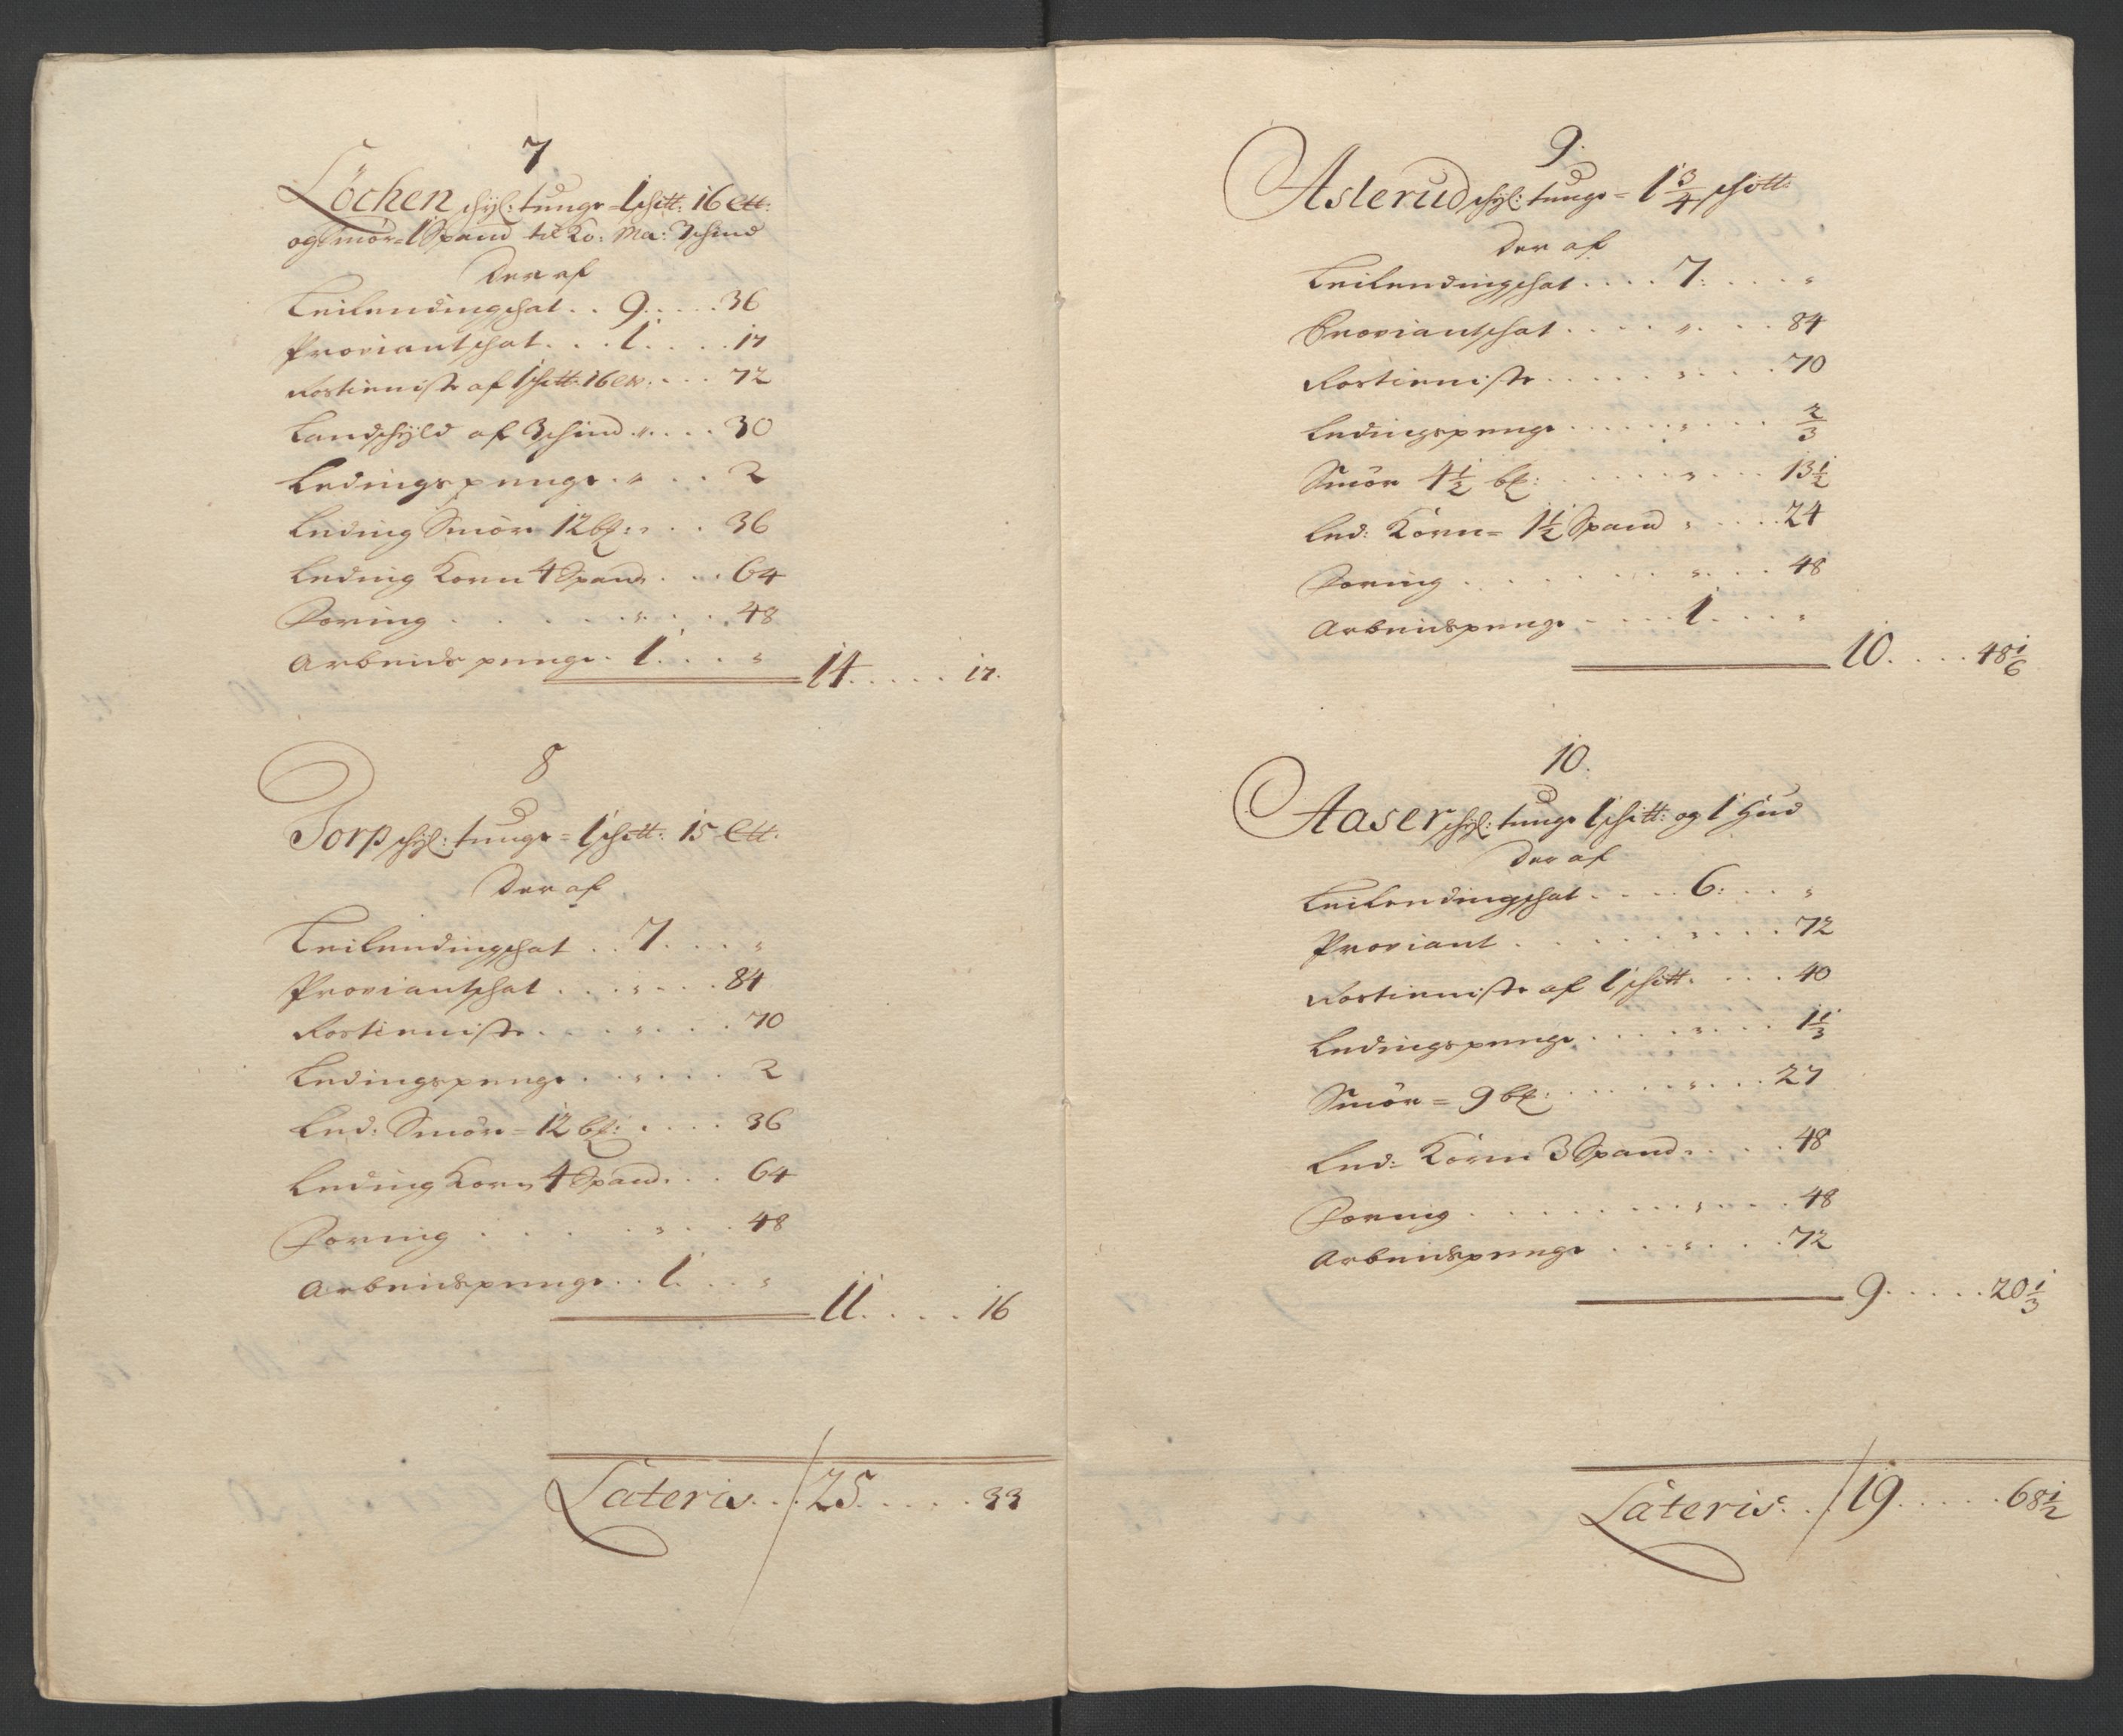 7
Löchen schyl: tunge = 1 schtt: 16 Ett:
og Smör = 1 Spand til Ko: Ma: 3 skind
Der af
Leilendingschat . . 9 . . . . 36
Proviantschat . . . 1 . . . . 17
Rostienniste af 1 schtt: 16 Ett: . . . 72
Landschyld af 3 skind . " . . . 30
Ledingspenge . " . . . 2
Leding Smör 12 bl: " . . . 36
Leding Korn 4 Spand . . . 64
Foring . . . . . " . . . 48
Arbeids penge . 1 . . . "
14 . . . . . 17.
8
Torp schyl: tunge = 1 schtt: 15 Ett:
Der af
Leilendingschat . . 7 . . . "
Proviantschat . . . " . . . 84
Rostienniste . . . " . . . 70
Ledingspenge . . " . . . 2
Led: Smör = 12 bl: . . . . 36
Leding Korn 4 Spand . . . 64
Foring . . . . " . . . 48
Arbeidspenge . . 1 . . . "
11 . . . . 16
Lateris . . . 25 . . . . . 33
9.
Asterud schyl: tunge = 1 3/4 schtt:
Der af
Leilendingschat . . . . 7 : . . . "
Proviantschat . . . . " . . . 84
Rostienniste . . . . . " . . . 70
Ledingspenge . . . . . " . . . 2/3
Smör 4 1/2 bl: . . . . . " . . . 13 1/2
Led: Korn = 1 1/2 Spand " . . . . 24
Foring . . . . . . . " . . . 48
Arbeidspenge . . . . 1 . . . "
10 . . . . 48 1/6
10.
Aaser schyl: tunge 1 schtt: og 1 Hud
Der af
Leilendingschat . . . . 6 : . . "
Proviant . . . . . . " . . . . 72
Rostienniste af 1 schtt: . . . 40
Ledingspenge . . . . . " . . . 1 1/3
Smör = 9 bl: . . . . . " . . . 27
Led: Korn 3 Spand . . . . 48
Foring . . . . . . . . " . . . . 48
Arbeidspenge . . . " . . . . 72
9 . . . . . 20 1/3
Lateris . . . 19 . . . . . 68 1/2